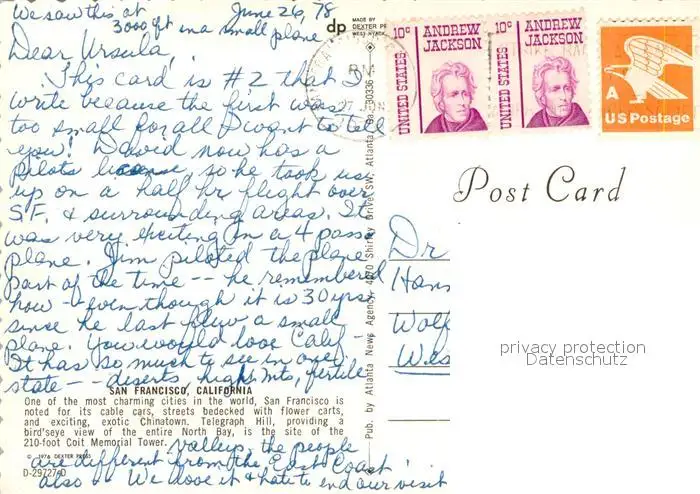 We saw this at
3000 ft in a small plane
June 26, 78
Dear Ursula,
This card is #2 that I
write because the first was
too small for all I want to tell
you! David now has a
pilots license, so he took us
up on a half hr flight over
S.F. & surrounding areas. It
was very exciting in a 4 pass
plane. Jim piloted the plane
part of the time -- he remembered
how -- even though it is 30 yrs
since he last flew a small
plane. You would love Calif -
It has so much to see in one
state -- deserts, high mts, fertile
SAN FRANCISCO, CALIFORNIA
One of the most charming cities in the world, San Francisco is
noted for its cable cars, streets bedecked with flower carts,
and exciting, exotic Chinatown. Telegraph Hill, providing a
bird'seye view of the entire North Bay, is the site of the
210-foot Coit Memorial Tower.
valleys, the people
© 1976 DEXTER PRESS
are different from the East Coast
D-29727-D
also -- We love it & hate to end our visit
dp
MADE BY
DEXTER PR
WEST NYACK,
Pub. by Atlanta News Agency, 4070 Shirley Drive, SW, Atlanta, Ga. 30336
PM
10c
ANDREW
JACKSON
UNITED STATES
10c
ANDREW
JACKSON
UNITED STATES
A
US Postage
Post Card
Dr
Hans
Wolf
Wes
privacy protection
Datenschutz